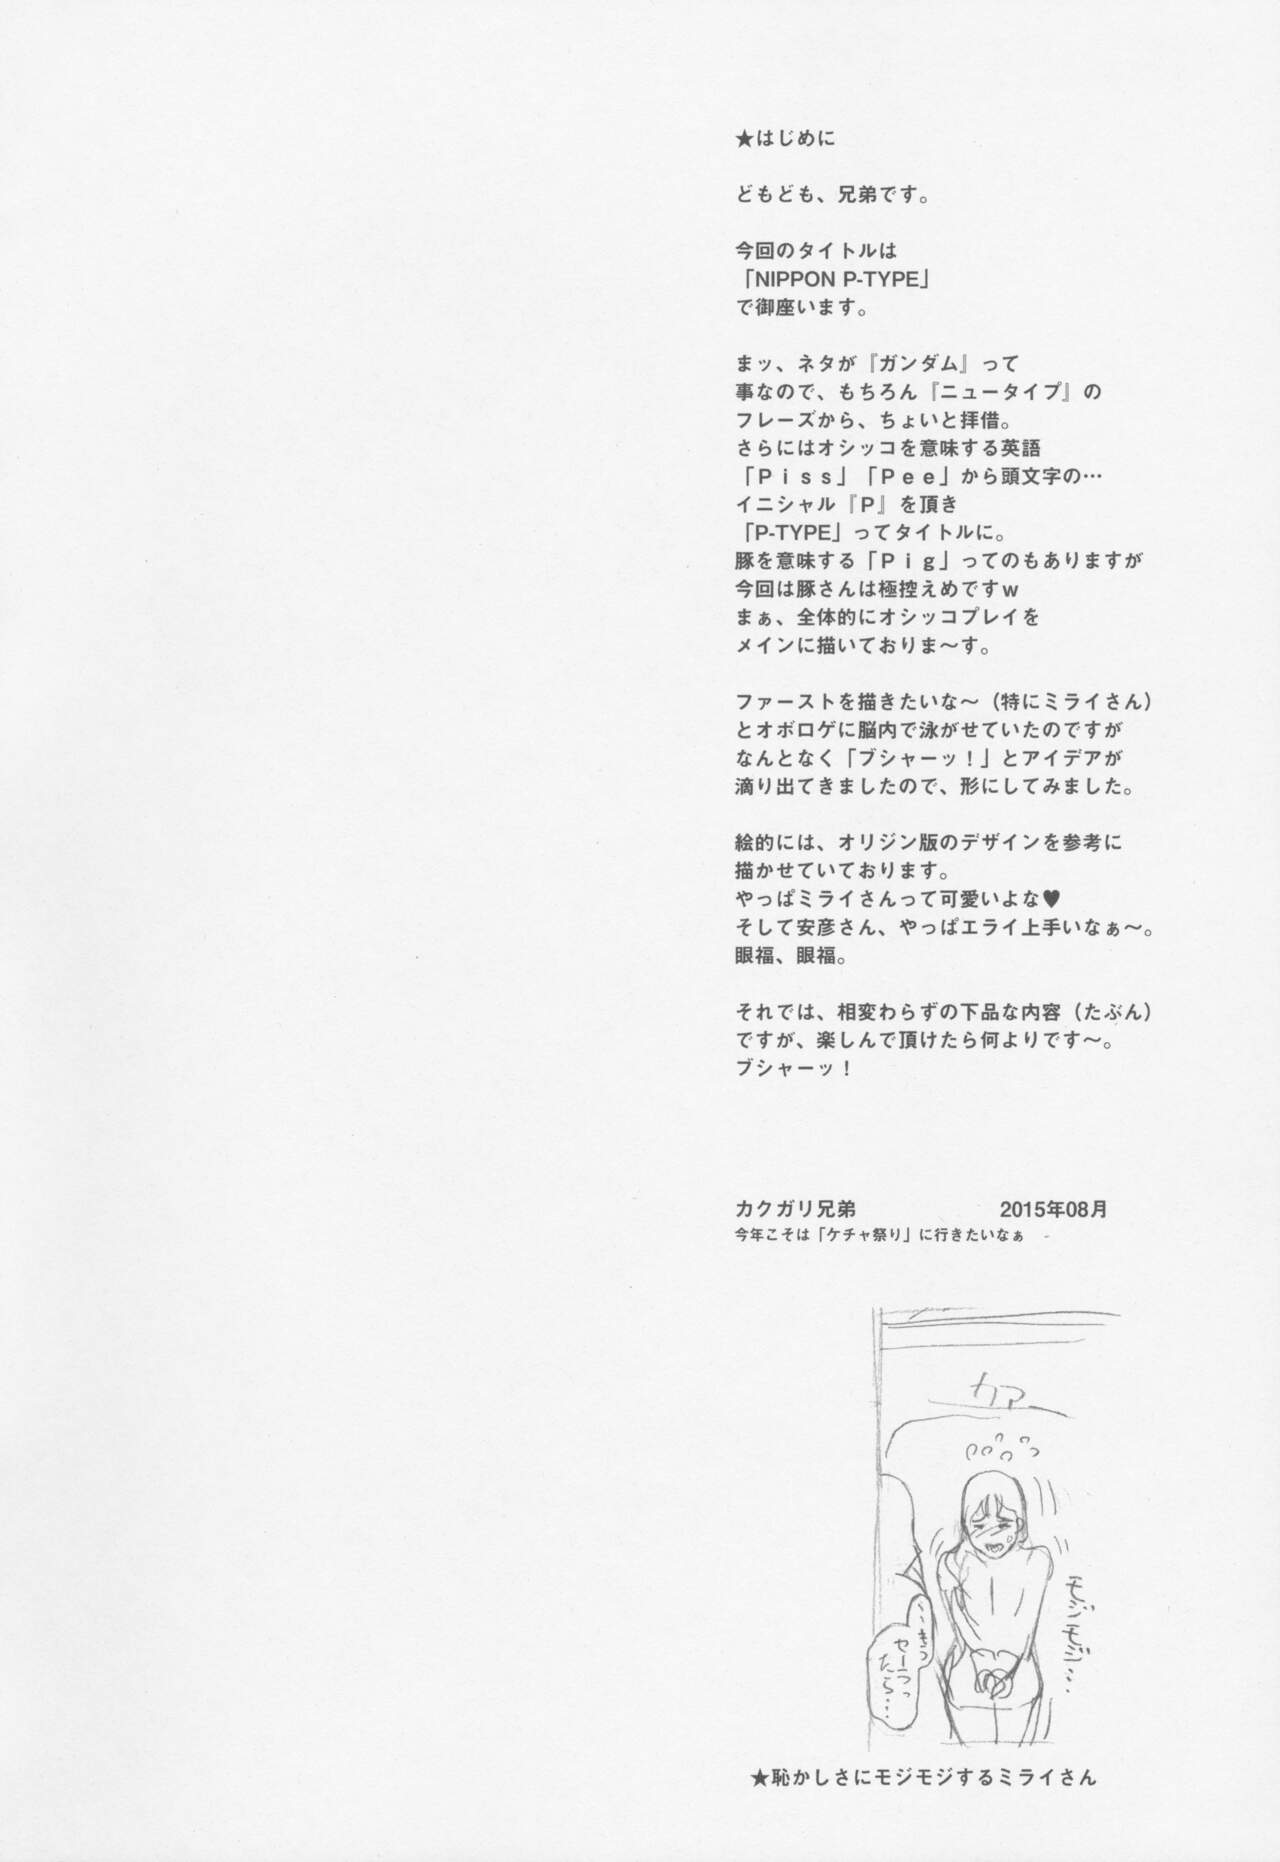 ★はじめに
どもども、兄弟です。
今回のタイトルは
「NIPPON P-TYPE」
で御座います。
まッ、ネタが『ガンダム』って
事なので、もちろん『ニュータイプ』の
フレーズから、ちょいと拝借。
さらにはオシッコを意味する英語
「Ｐｉｓｓ」「Ｐｅｅ」から頭文字の…
イニシャル『Ｐ』を頂き
「P-TYPE」ってタイトルに。
豚を意味する「Ｐｉｇ」ってのもありますが
今回は豚さんは極控えめですｗ
まぁ、全体的にオシッコプレイを
メインに描いておりま〜す。
ファーストを描きたいな〜（特にミライさん）
とオボロゲに脳内で泳がせていたのですが
なんとなく「ブシャーッ！」とアイデアが
滴り出てきましたので、形にしてみました。
絵的には、オリジン版のデザインを参考に
描かせていております。
やっぱミライさんって可愛いよな♥
そして安彦さん、やっぱエライ上手いなぁ〜。
眼福、眼福。
それでは、相変わらずの下品な内容（たぶん）
ですが、楽しんで頂けたら何よりです〜。
ブシャーッ！
カクガリ兄弟 2015年08月
今年こそは「ケチャ祭り」に行きたいなぁ
カァ
モジモジ…
セーラったら…
★恥かしさにモジモジするミライさん